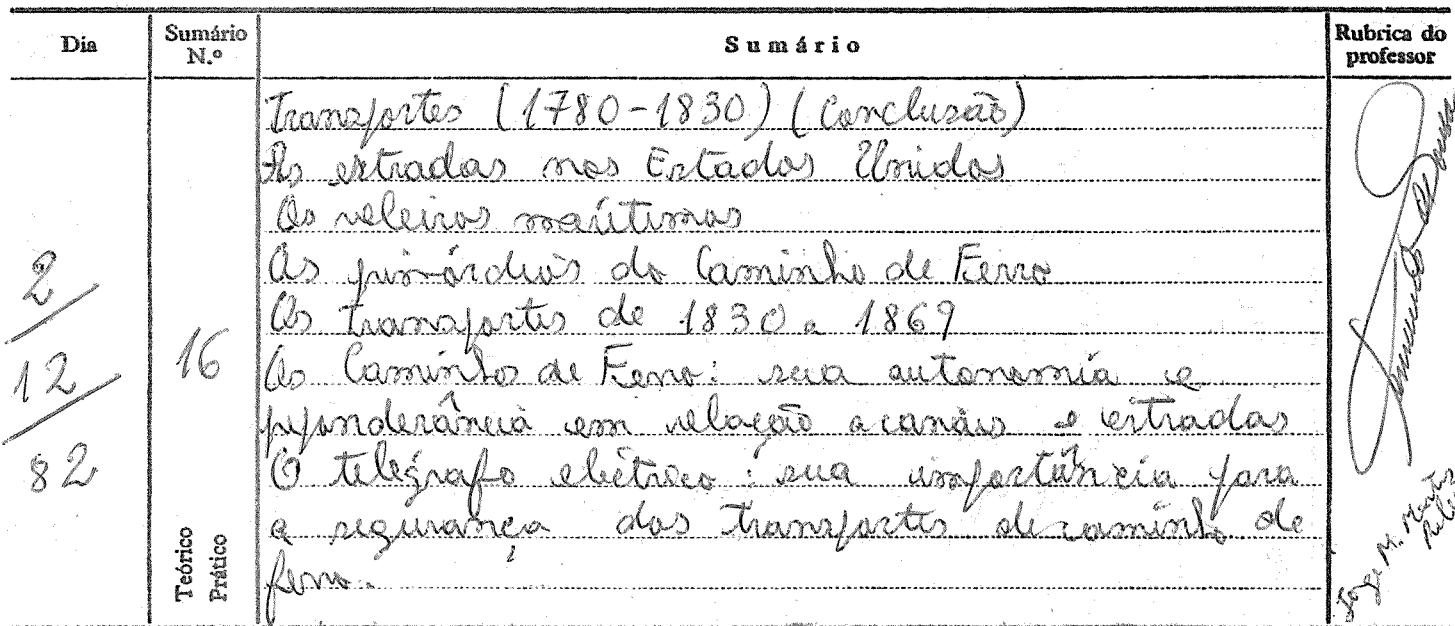 Dia
Sumário N.º
Sumário
Rubrica do professor
2/12/82
16
Teórico
Prático
Transportes (1780-1830) (Conclusão)
As estradas nos Estados Unidos
Os veleiros marítimos
Os primórdios do Caminho de Ferro
Os transportes de 1830 a 1869
Os Caminhos de Ferro: sua autonomia e
preponderância em relação a canais e estradas
O telégrafo eléctrico: sua importância para
a segurança dos transportes de caminho de
ferro.
Jorge M.